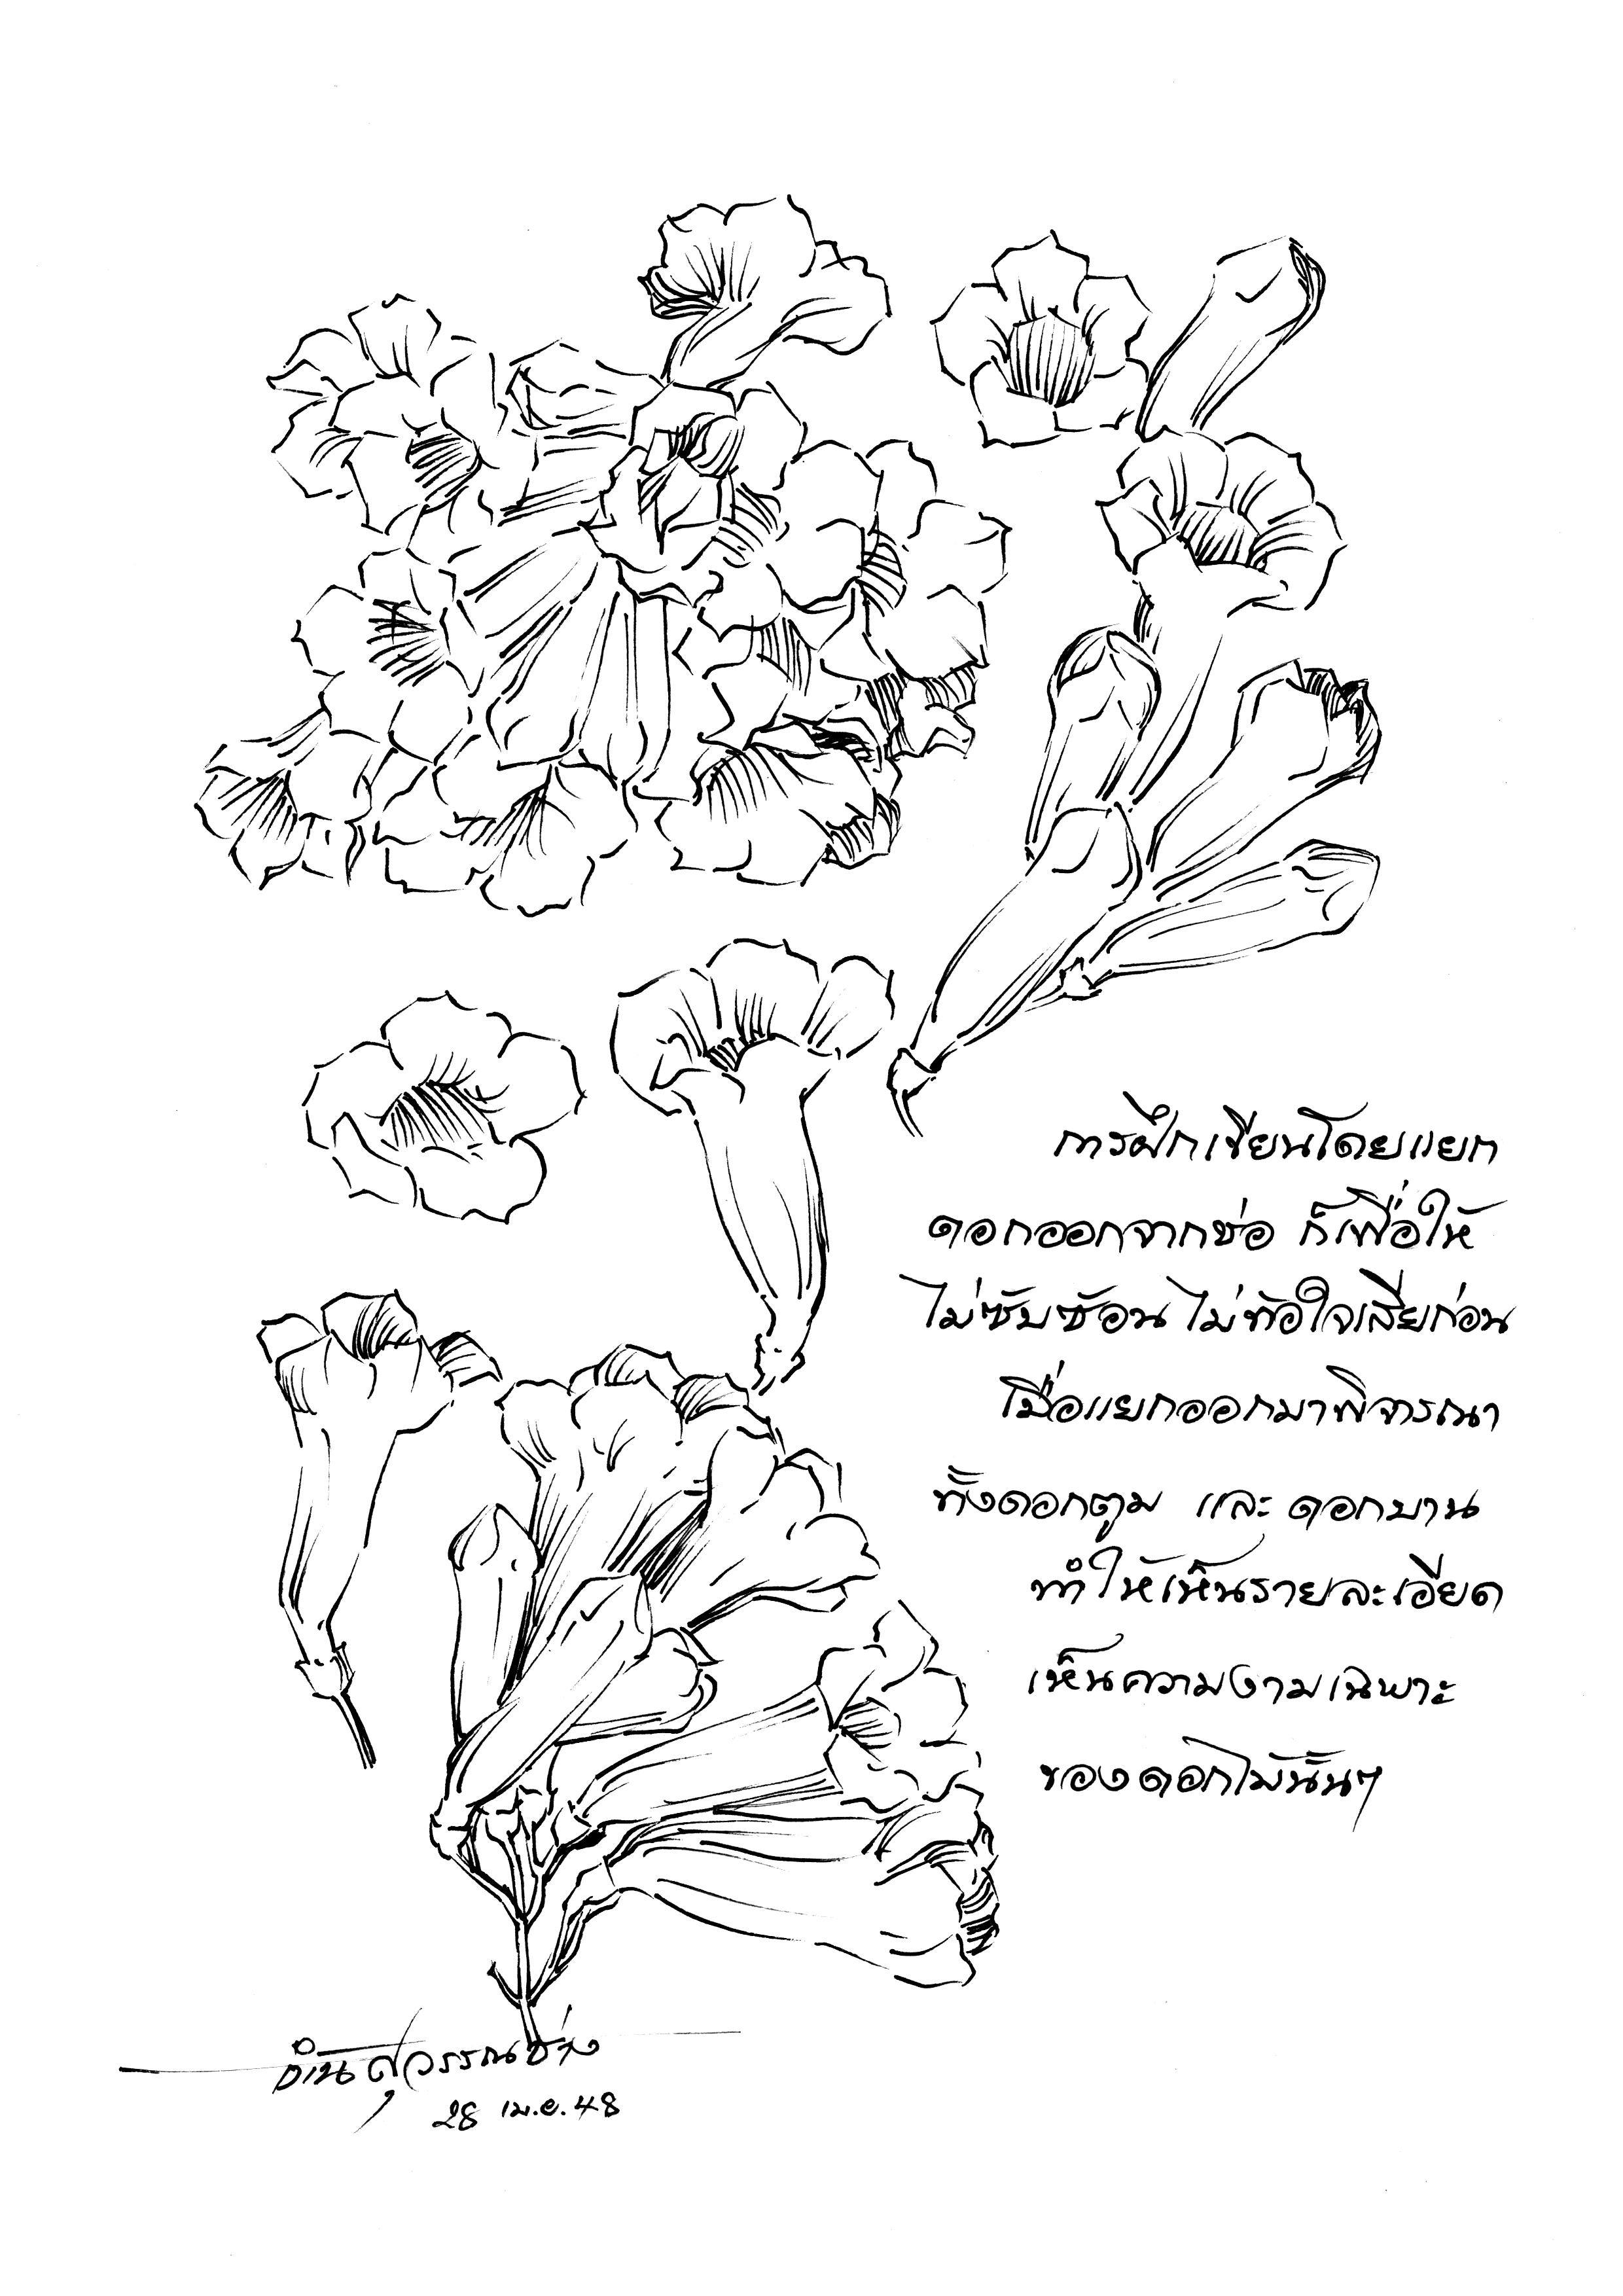 การฝึกเขียนโดยแยก
ดอกออกจากช่อ ก็เพื่อให้
ไม่ซับซ้อน ไม่ท้อใจเสียก่อน
เมื่อแยกออกมาพิจารณา
ทั้งดอกตูม และ ดอกบาน
ทำให้เห็นรายละเอียด
เห็นความงามเฉพาะ
ของดอกไม้นั้นๆ
สุวรรณช่าง
28 เม.ย. 48